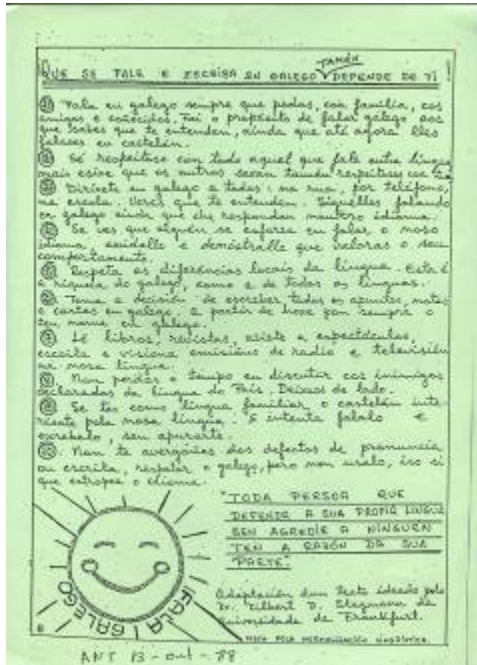 TAMÉN
QUE SE FALE E ESCRIBA EN GALEGO DEPENDE DE TÍ!
① Fala en galego sempre que podas, coa familia, cos
amigos e coñecidos. Fai o propósito de falar galego aos
que sabes que te entenden, aínda que até agora lles
falases en castelán.
② Sé respeitoso con todo aquel que fale outra lingua
mais esixe que os outros sexan tamén respeitosos coa
③ Diríxete en galego a todos: na rua, por teléfono,
na escola. Veres que te entenden. Síguelles falando
en galego aínda que che respondan noutro idioma.
④ Se ves que alguén se esforza en falar o noso
idioma, axúdalle e demóstralle que valoras o seu
comportamento.
⑤ Respeta as diferencias locais da lingua. Esta é
a riqueza do galego, como a de todas as linguas.
⑥ Toma a decisión de escreber todos os apuntes, notas
e cartas en galego. A partir de hoxe pon sempre o
teu nome en galego.
⑦ Lé libros, revistas, asiste a espectáculos,
escoita e visiona emisións de radio e televisión
na nosa lingua.
⑧ Non perdas o tempo en discutir cos inimigos
declarados da lingua do País. Déixaos de lado.
⑨ Se tes como lingua familiar o castelán inte-
résate pola nosa lingua. E intenta falalo e
escrebelo, sen apurarte.
⑩ Non te avergoñes dos defectos de pronuncia
ou escrita, respetar o galego, pero non usalo, iso si
que estropea o idioma.
"TODA PERSOA QUE
DEFENDE A SUA PROPIA LINGUA
SEN AGREDIR A NINGUEN
TEN A RAZÓN DA SUA
PARTE".
FALA GALEGO!
Adaptación dun texto ideado polo
Dr. Tilbert D. Stegmann da
Universidade de Frankfurt.
MESA POLA NORMALIZACIÓN LINGÜÍSTICA.
ANT 13-out-88